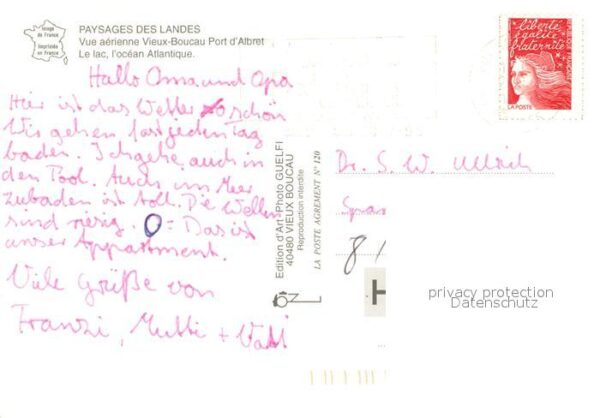 Image de France
Imprimée en France
PAYSAGES DES LANDES
Vue aérienne Vieux-Boucau Port d'Albret
Le lac, l'océan Atlantique.
Hallo Oma und Opa
Hier ist das Wetter so schön
Wir gehen fast jeden Tag
baden. Ich gehe auch in
den Pool. Auch im Meer
zubaden ist toll. Die Wellen
sind riesig. O = Das ist
unser Appartment.
Viele Grüße von
Franzi, Mutti + Vati
Edition d'Art Photo GUELFI
40480 VIEUX BOUCAU
Reproduction interdite
LA POSTE AGREMENT N° 120
liberté
égalité
fraternité
LA POSTE
Dr. S. W. Ullrich
8
H
privacy protection
Datenschutz